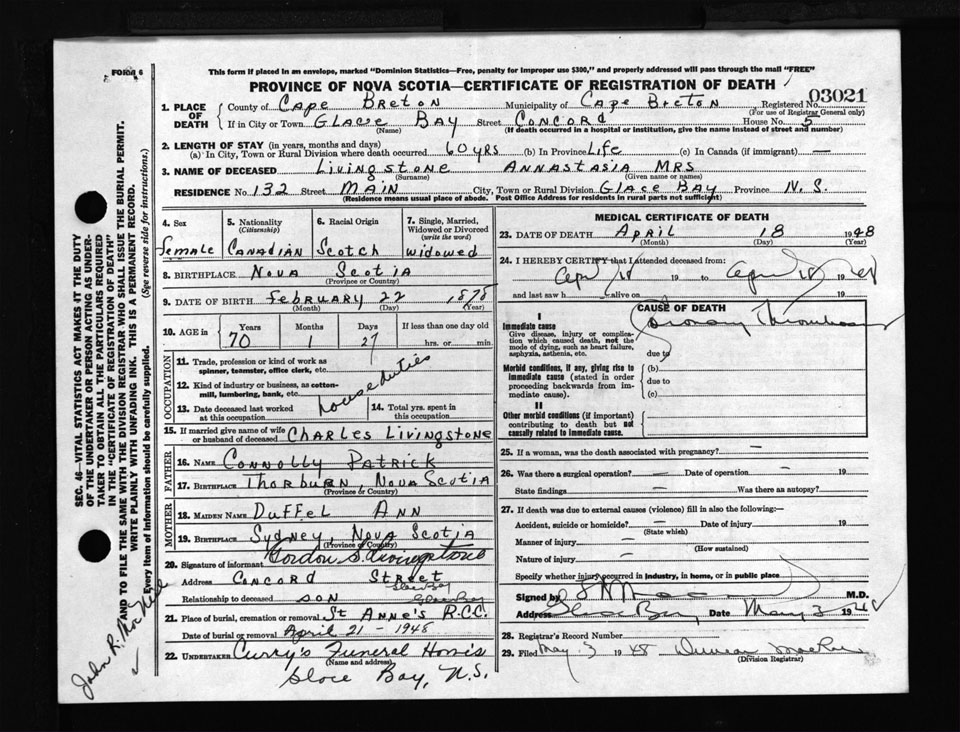 FORM 6
This form if placed in an envelope, marked "Dominion Statistics—Free, penalty for improper use $300," and properly addressed will pass through the mail "FREE"
PROVINCE OF NOVA SCOTIA—CERTIFICATE OF REGISTRATION OF DEATH
03021
1. PLACE OF DEATH County of Cape Breton Municipality of Cape Breton Registered No.
(For use of Registrar General only)
If in City or Town Glace Bay Street Concord House No. 5
(Name) (If death occurred in a hospital or institution, give the name instead of street and number)
2. LENGTH OF STAY (in years, months and days)
(a) In City, Town or Rural Division where death occurred 60 yrs (b) In Province Life (c) In Canada (if immigrant) —
3. NAME OF DECEASED Livingstone Annastasia Mrs
(Surname) (Given name or names)
RESIDENCE No. 132 Street Main City, Town or Rural Division Glace Bay Province N.S.
(Residence means usual place of abode. Post Office Address for residents in rural parts not sufficient)
4. Sex
female
5. Nationality
(Citizenship)
Canadian
6. Racial Origin
Scotch
7. Single, Married, Widowed or Divorced
(write the word)
widowed
8. BIRTHPLACE Nova Scotia
(Province or Country)
9. DATE OF BIRTH February 22 1878
(Month) (Day) (Year)
10. AGE in Years Months Days If less than one day old
70 1 27 hrs. or min.
OCCUPATION
11. Trade, profession or kind of work as spinner, teamster, office clerk, etc.
house duties
12. Kind of industry or business, as cotton-mill, lumbering, bank, etc.
13. Date deceased last worked at this occupation
14. Total yrs. spent in this occupation
15. If married give name of wife or husband of deceased Charles Livingstone
FATHER
16. NAME Connolly Patrick
17. BIRTHPLACE Thorburn, Nova Scotia
(Province or Country)
MOTHER
18. MAIDEN NAME Duffel Ann
19. BIRTHPLACE Sydney, Nova Scotia
(Province or Country)
20. Signature of informant Gordon S. Livingstone
Address Concord Street
Glace Bay
Relationship to deceased son Glace Bay
21. Place of burial, cremation or removal St Anne's R.C.C.
Date of burial or removal April 21 - 1948
22. UNDERTAKER Curry's Funeral Home
(Name and address)
Glace Bay, N.S.
MEDICAL CERTIFICATE OF DEATH
23. DATE OF DEATH April 18 1948
(Month) (Day) (Year)
24. I HEREBY CERTIFY that I attended deceased from:
Apr 18 19 to Apr 18 1948
and last saw h alive on 19
CAUSE OF DEATH
I
Immediate cause
Give disease, injury or complication which caused death, not the mode of dying, such as heart failure, asphyxia, asthenia, etc.
Coronary Thrombosis
due to
Morbid conditions, if any, giving rise to immediate cause (stated in order proceeding backwards from immediate cause).
(b)
due to
(c)
II
Other morbid conditions (if important) contributing to death but not causally related to immediate cause.
25. If a woman, was the death associated with pregnancy? —
26. Was there a surgical operation? — Date of operation — 19
State findings — Was there an autopsy?
27. If death was due to external causes (violence) fill in also the following:—
Accident, suicide or homicide? — Date of injury 19
(State which)
Manner of injury —
(How sustained)
Nature of injury —
Specify whether injury occurred in industry, in home, or in public place
Signed by M.D.
Address Glace Bay Date May 3 1948
28. Registrar's Record Number
29. Filed May 3 1948 Duncan MacRae
(Division Registrar)
SEC. 46—VITAL STATISTICS ACT MAKES IT THE DUTY
OF THE UNDERTAKER OR PERSON ACTING AS UNDER-
TAKER TO OBTAIN ALL THE PARTICULARS REQUIRED
IN THE "CERTIFICATE OF REGISTRATION OF DEATH"
AND TO FILE THE SAME WITH THE DIVISION REGISTRAR WHO SHALL ISSUE THE BURIAL PERMIT.
WRITE PLAINLY WITH UNFADING INK. THIS IS A PERMANENT RECORD.
Every item of information should be carefully supplied. (See reverse side for instructions.)
John R.